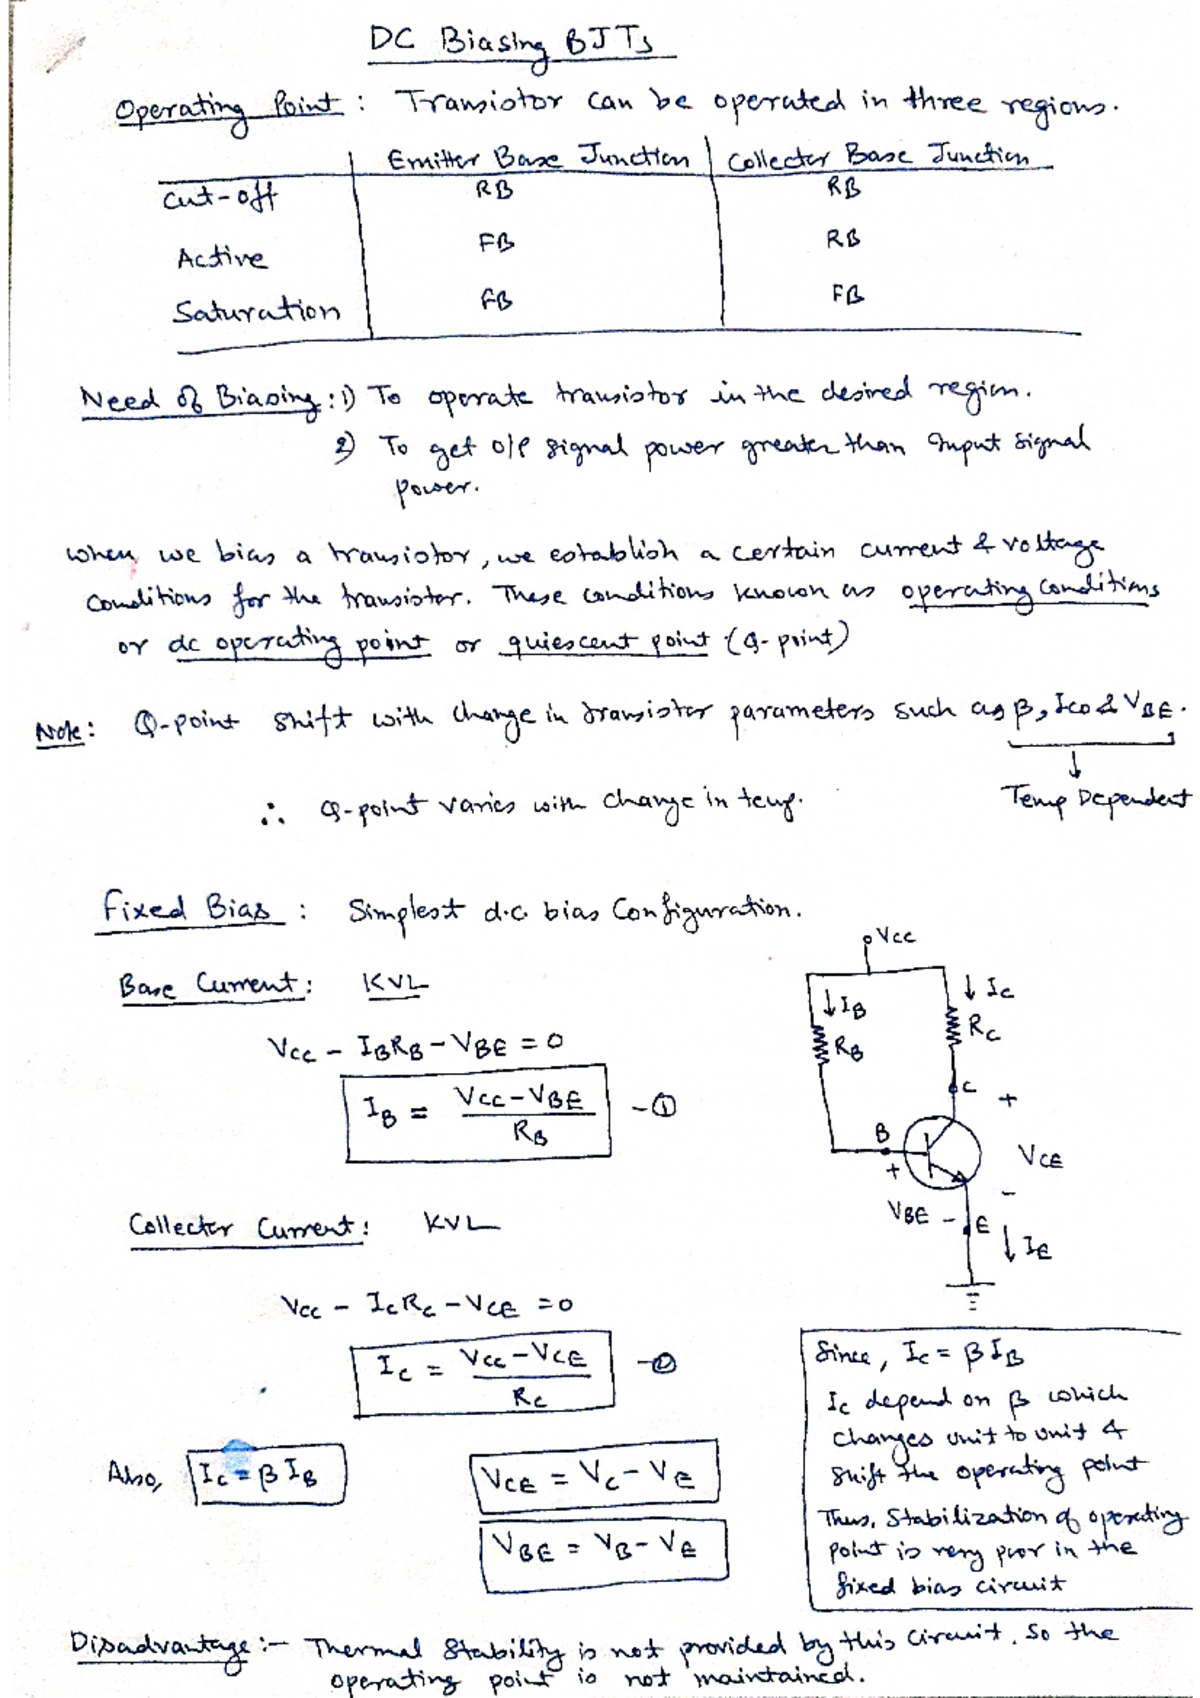 DC Biasing BJTs
Operating Point : Transistor can be operated in three regions.
Emitter Base Junction | Collector Base Junction
Cut-off RB RB
Active FB RB
Saturation FB FB
Need of Biasing : 1) To operate transistor in the desired region.
2) To get O/P signal power greater than Input signal
power.
when we bias a transistor, we establish a certain current & voltage
conditions for the transistor. These conditions known as operating conditions
or dc operating point or quiescent point (Q-point)
Note : Q-point shift with change in transistor parameters such as β, ICO & VBE.
↓
∴ Q-point varies with change in temp.
Temp Dependent
Fixed Bias : Simplest d.c. bias Configuration.
Base Current : KVL
VCC - IBRB - VBE = 0
IB = (VCC - VBE) / RB - ①
Collector Current : KVL
VCC - ICRC - VCE = 0
IC = (VCC - VCE) / RC - ②
Also, IC = β IB
VCE = VC - VE
VBE = VB - VE
VCC
↓ IB
↓ IC
RB
RC
C
+
B
+
VCE
-
VBE -
E
↓ IE
Since, IC = β IB
IC depend on β which
changes unit to unit &
shift the operating point
Thus, Stabilization of operating
point is very poor in the
fixed bias circuit
Disadvantage :- Thermal Stability is not provided by this circuit. So the
operating point is not maintained.